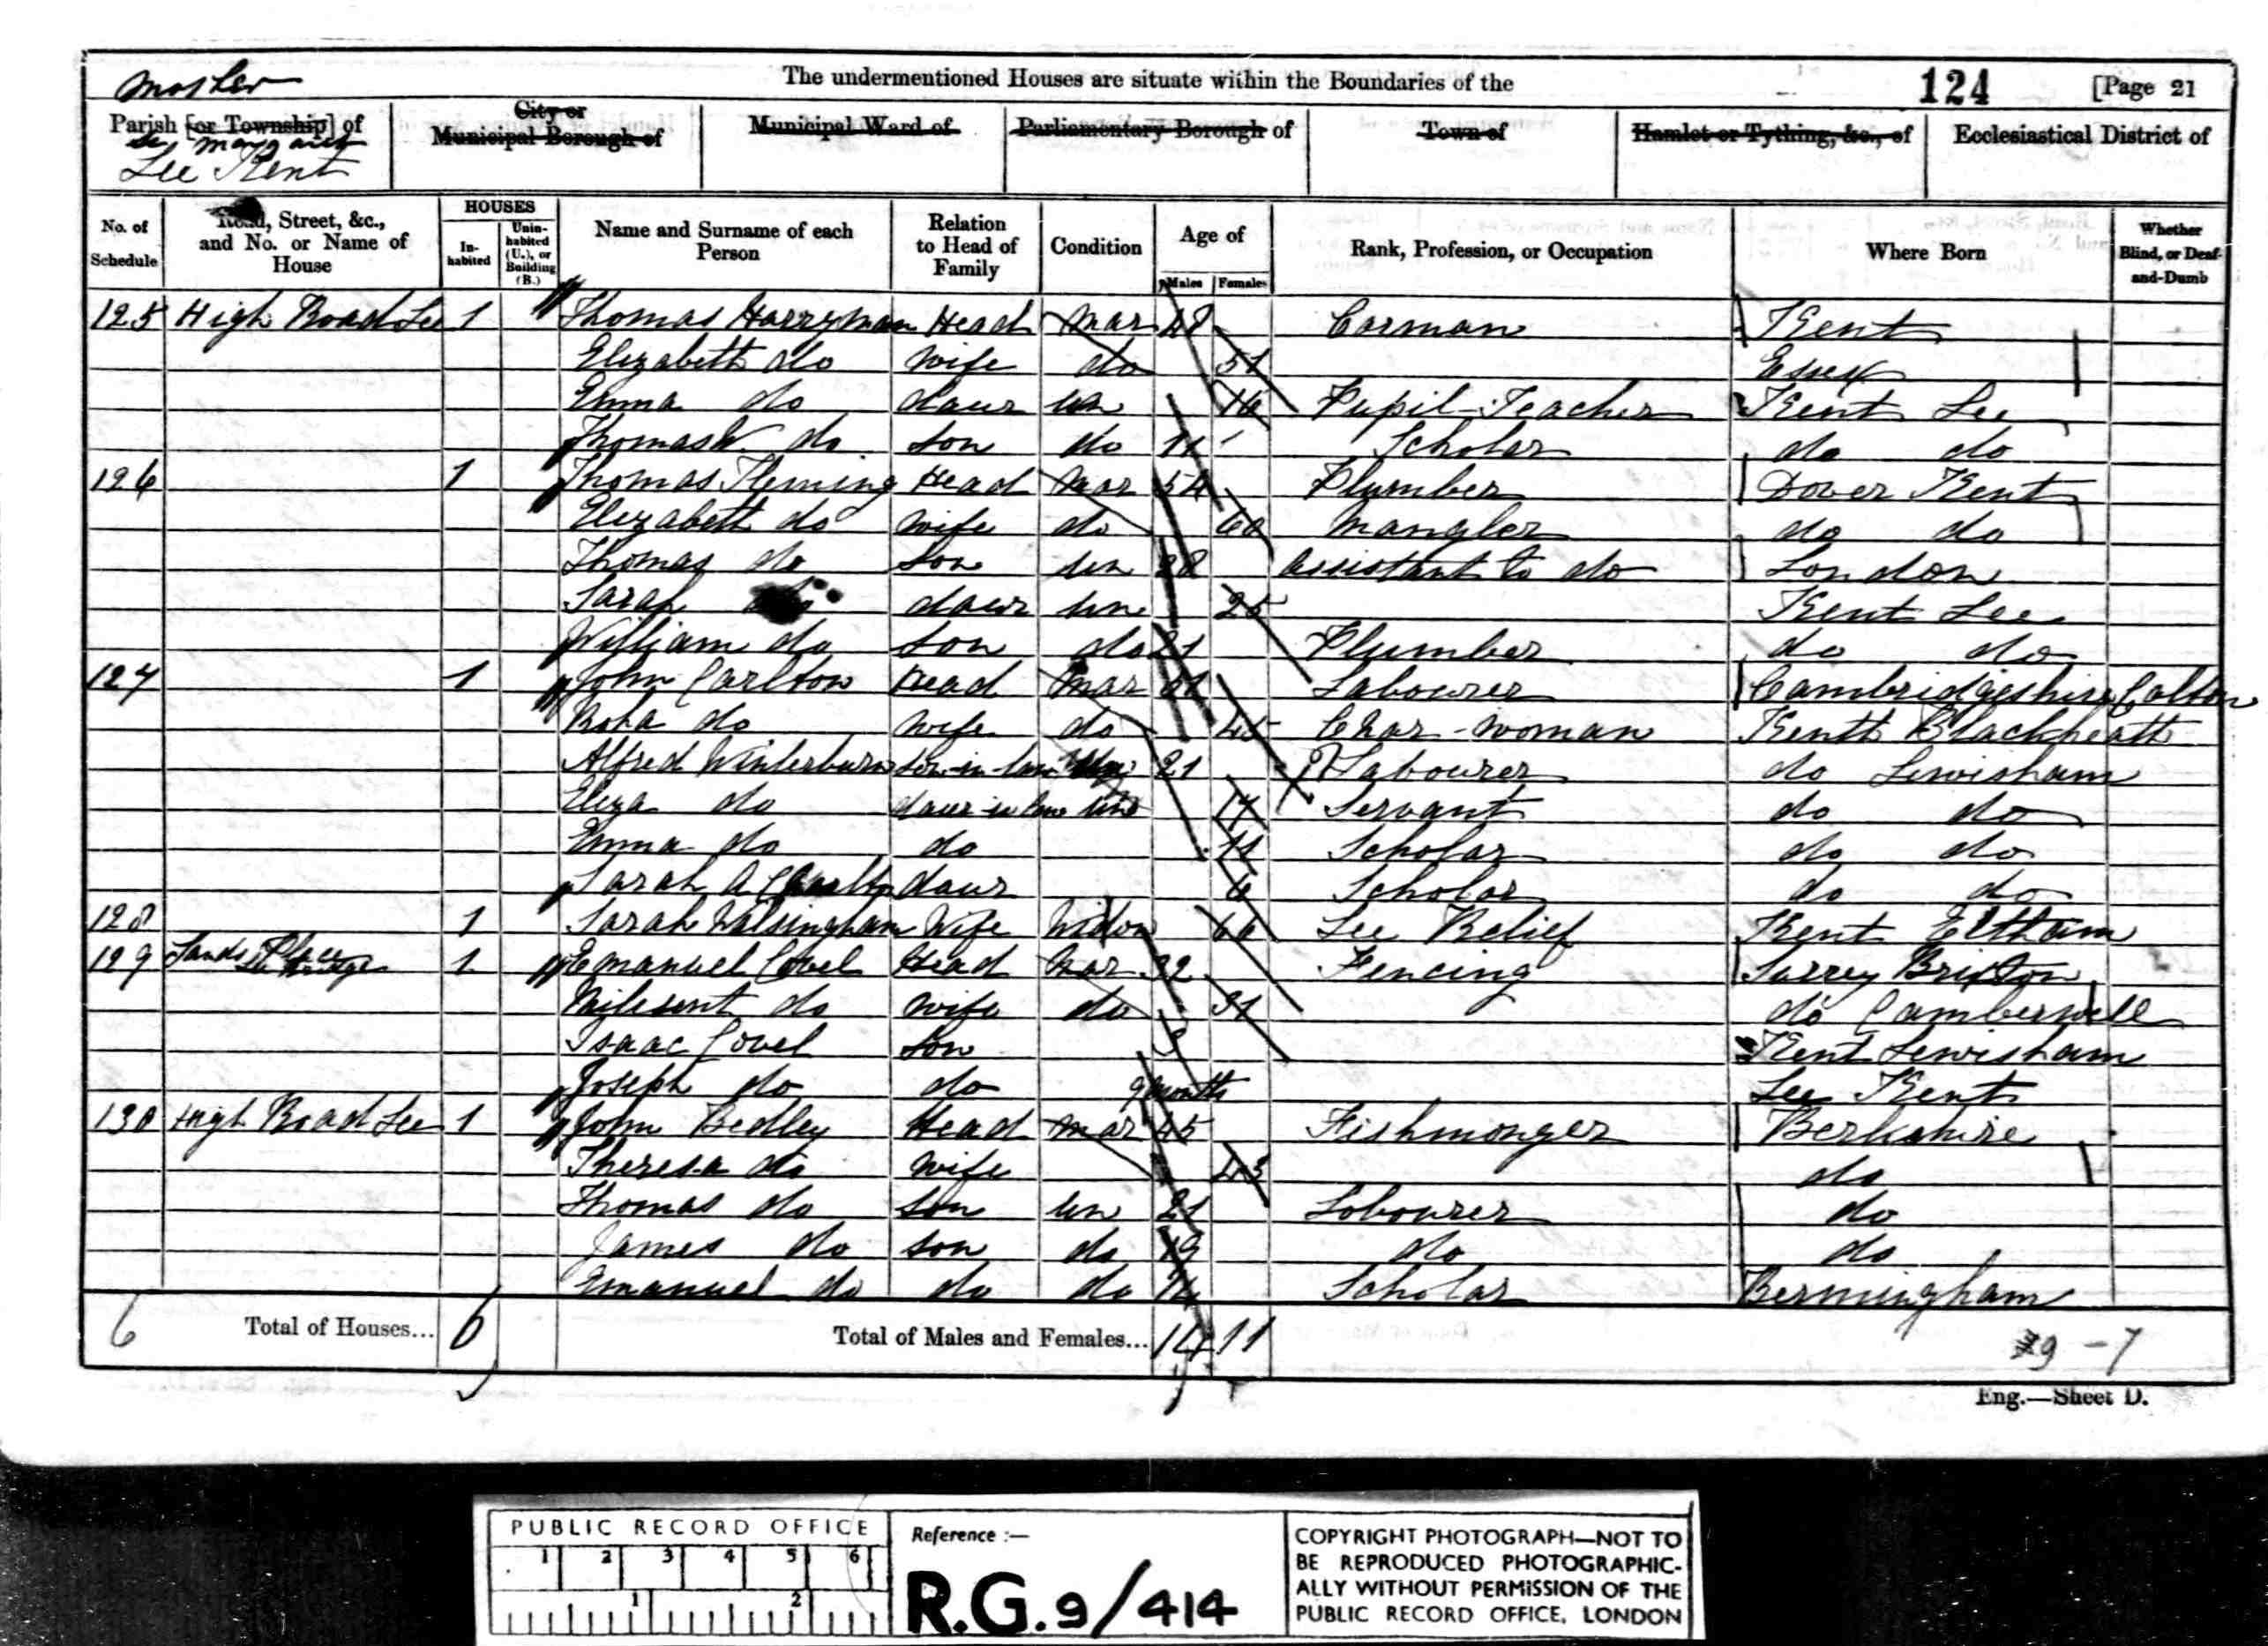 The undermentioned Houses are situate within the Boundaries of the 124 [Page 21
Parish [or Township] of City or Municipal Borough of Municipal Ward of Parliamentary Borough of Town of Hamlet or Tything, &c., of Ecclesiastical District of
Lee Kent
No. of Schedule Road, Street, &c., and No. or Name of House HOUSES In-habited Unin-habited (U.), or Building (B.) Name and Surname of each Person Relation to Head of Family Condition Age of Males Females Rank, Profession, or Occupation Where Born Whether Blind, or Deaf-and-Dumb
125 High Road Lee 1 Thomas Harryman Head Mar 48 Carman Kent
Elizabeth do Wife do 51 Essex
Emma do daur un 16 Pupil-Teacher Kent Lee
Thomas W do son do 11 Scholar do do
126 1 Thomas Fleming Head Mar 54 Plumber Dover Kent
Elizabeth do Wife do 60 Mangler do do
Thomas do Son un 28 Assistant to do London
Sarah do daur un 25 Kent Lee
William do son do 21 Plumber do do
127 1 John Carlton Head Mar Labourer Cambridgeshire
do Wife do 45 Char-woman Kentt Blackheath
Alfred Winterburn son-in-law 21 Labourer do Lewisham
Eliza do daur-in-law un 17 Servant do do
Emma do do 11 Scholar do do
Sarah A Carlton daur 6 Scholar do do
128 1 Sarah Walsingham Wife Widow 66 Lee Relief Kent Eltham
129 Sands Place 1 Emanuel Covel Head Mar 32 Fencing Surrey Brixton
Milesent do Wife do 31 do Camberwell
Isaac Covel Son Kent Lewisham
Joseph do do 9 Months Lee Kent
130 High Road Lee 1 John Bedley Head Mar 45 Fishmonger Berkshire
Theresa do Wife 43 do
Thomas do Son un 21 Labourer do
James do son do 19 do do
Emanuel do do do 14 Scholar Bermingham
6 Total of Houses... 6 Total of Males and Females... 14 11
9 - 7
Eng.—Sheet D.
PUBLIC RECORD OFFICE
1 2 3 4 5 6
1 2
Reference :—
R.G. 9/414
COPYRIGHT PHOTOGRAPH—NOT TO
BE REPRODUCED PHOTOGRAPHIC-
ALLY WITHOUT PERMISSION OF THE
PUBLIC RECORD OFFICE, LONDON